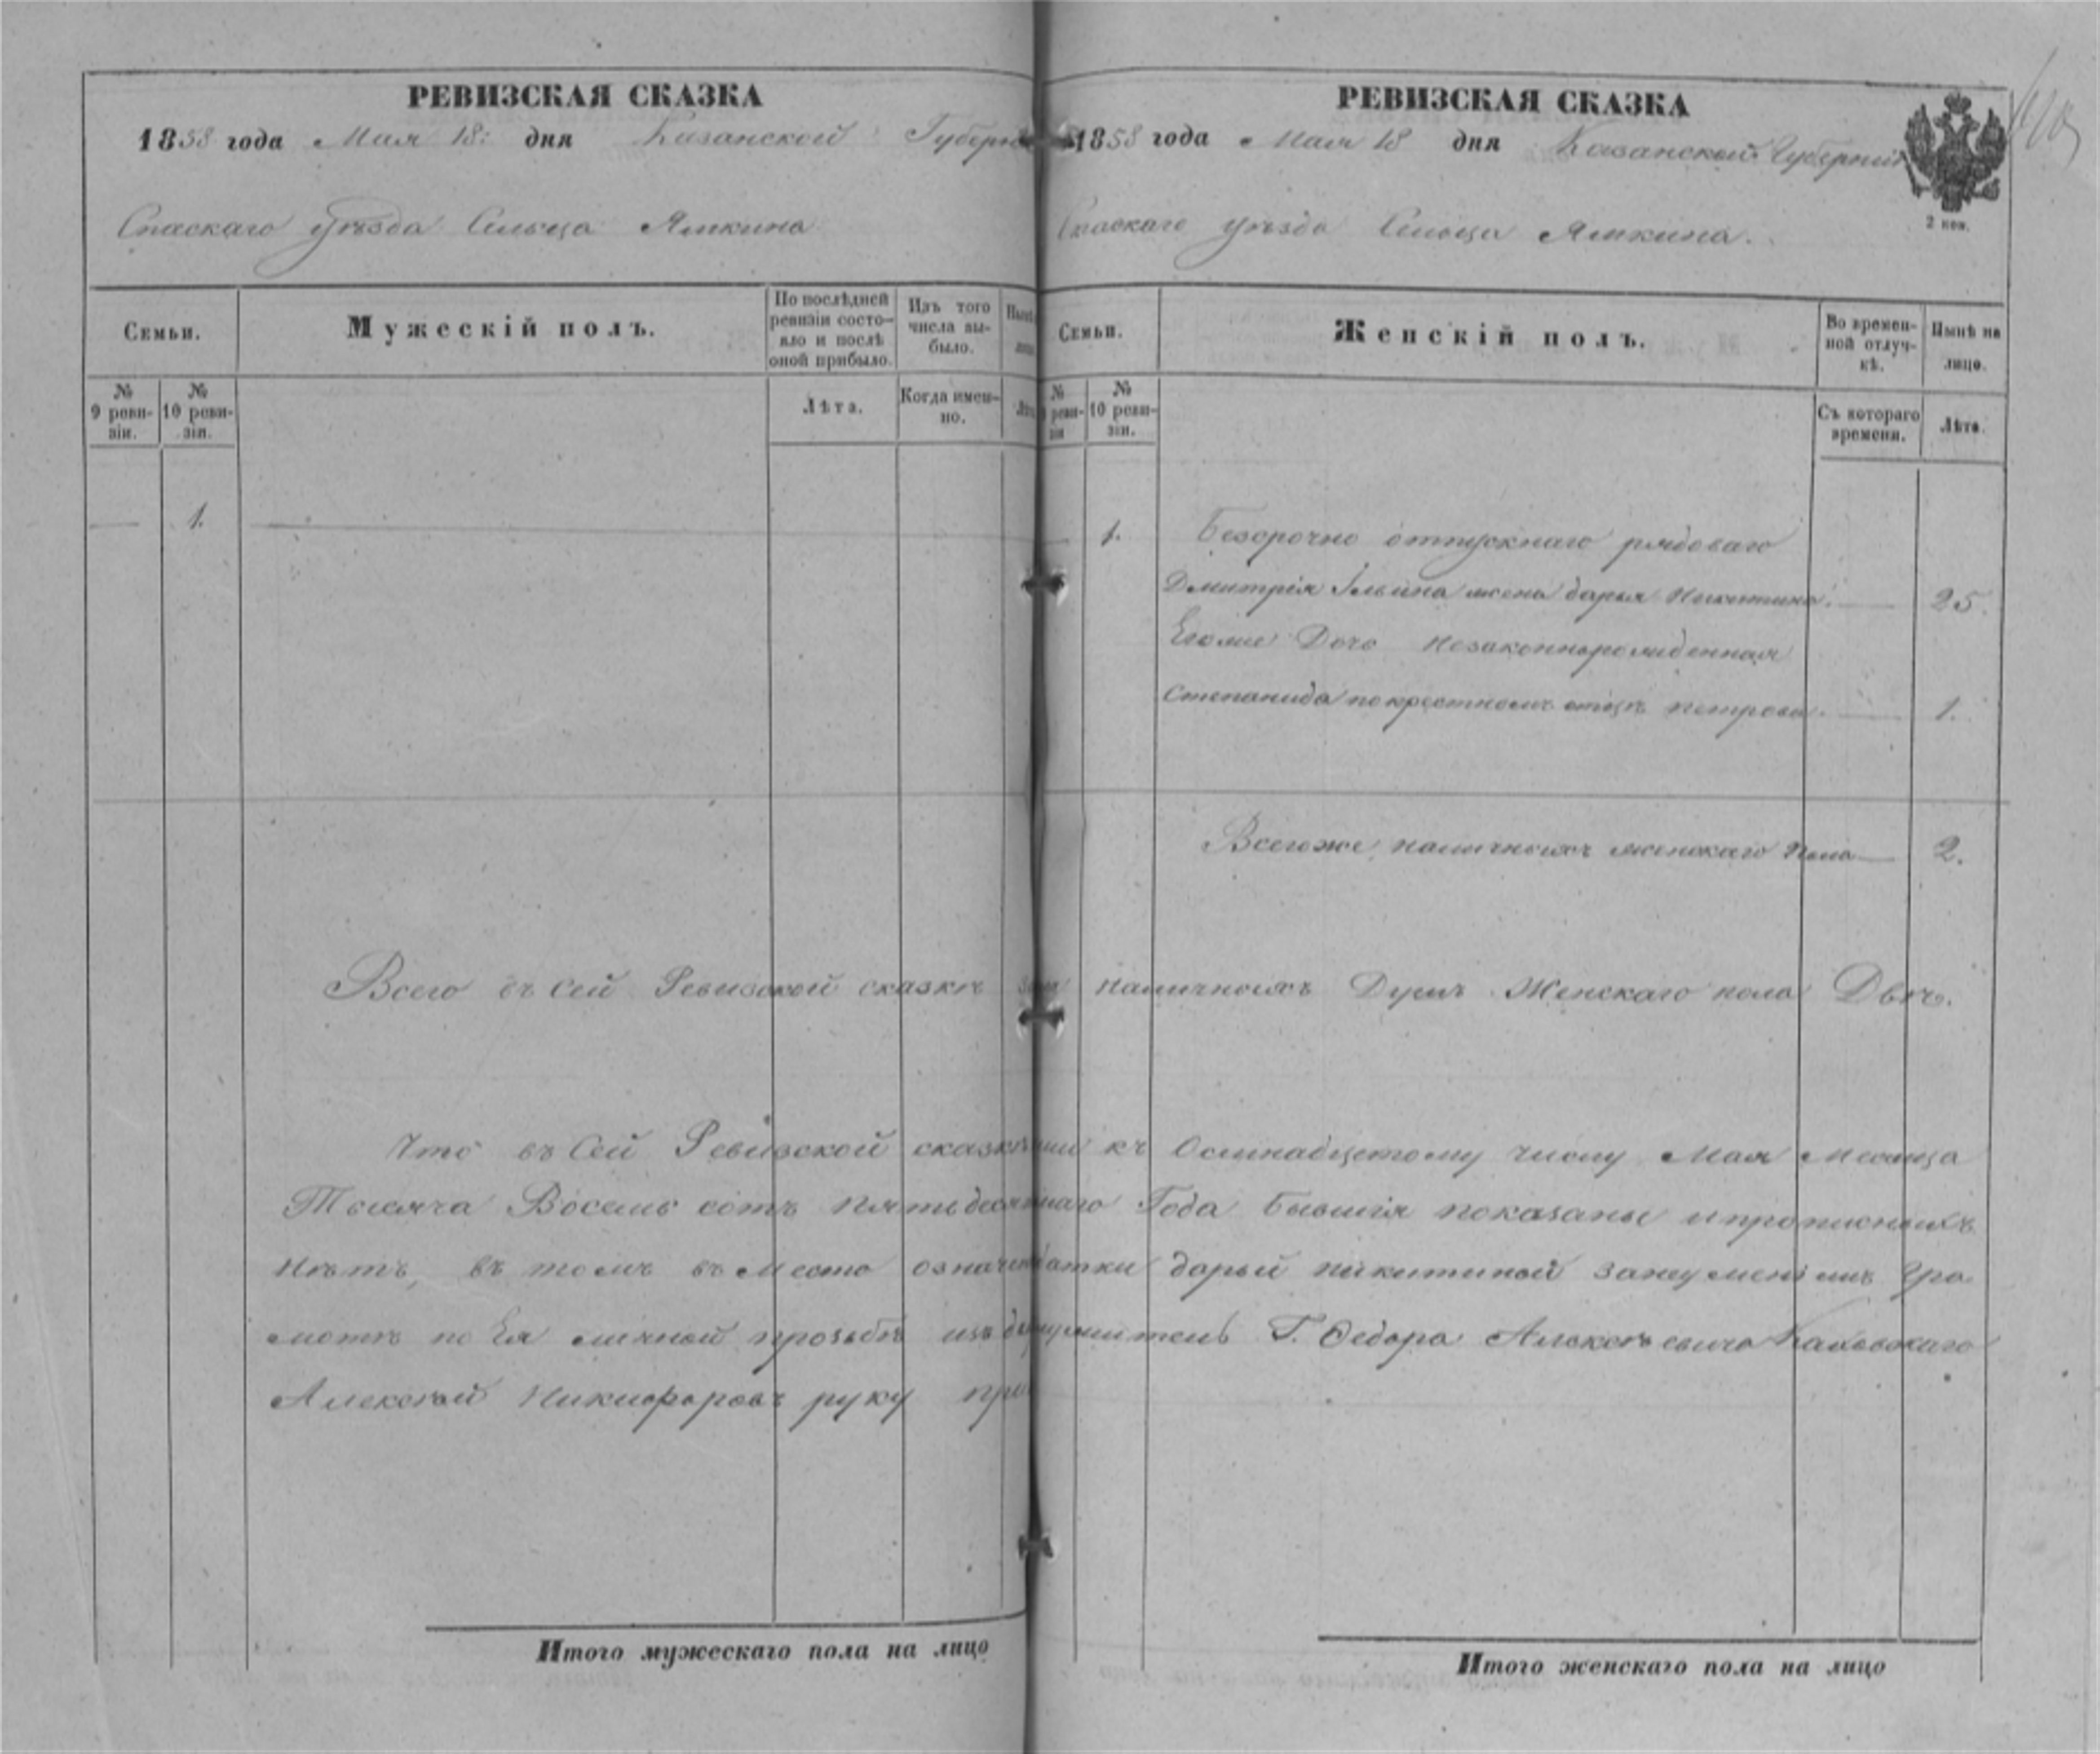 РЕВИЗСКАЯ СКАЗКА
1858 года Мая 18: дня Казанской Губерн
Спаскаго уѣзда Сельца Ямкина
Семьи.
Мужескій полъ.
По послѣдней ревизіи состояло и послѣ оной прибыло.
Изъ того числа выбыло.
№ 9 ревизіи.
№ 10 ревизіи.
Лѣта.
Когда именно.
1.
РЕВИЗСКАЯ СКАЗКА
1858 года Мая 18 дня Казанской Губерніи
2 коп.
Спаскаго уѣзда Сельца Ямкина.
Семьи.
Женскій полъ.
Во временной отлучкѣ.
Нынѣ на лицо.
№ 10 ревизіи.
Съ котораго времени.
Лѣта.
1. Безсрочно отпускнаго рядоваго
Дмитрія Ильина жена дарья Никитина. 25.
Дочь незаконнорожденная
Степанида по крестномъ отцѣ петрова. 1.
Всегоже наличныхъ женскаго пола 2.
Всего въ сей Ревизской сказкѣ наличныхъ Душъ Женскаго пола Двѣ.
Что въ Сей Ревизской сказкѣ къ Осмнадцетому числу Мая месяца
Тысяча Восемь сотъ пятьдесят Года бывшія показаны и прописныхъ
нѣтъ, въ томъ въместо дарьи никитиной гра
мотѣ по Ея личной прозьбѣ Г. Ѳедора Алексѣевича
Алексѣй Никифоровъ руку при
Итого мужескаго пола на лицо
Итого женскаго пола на лицо